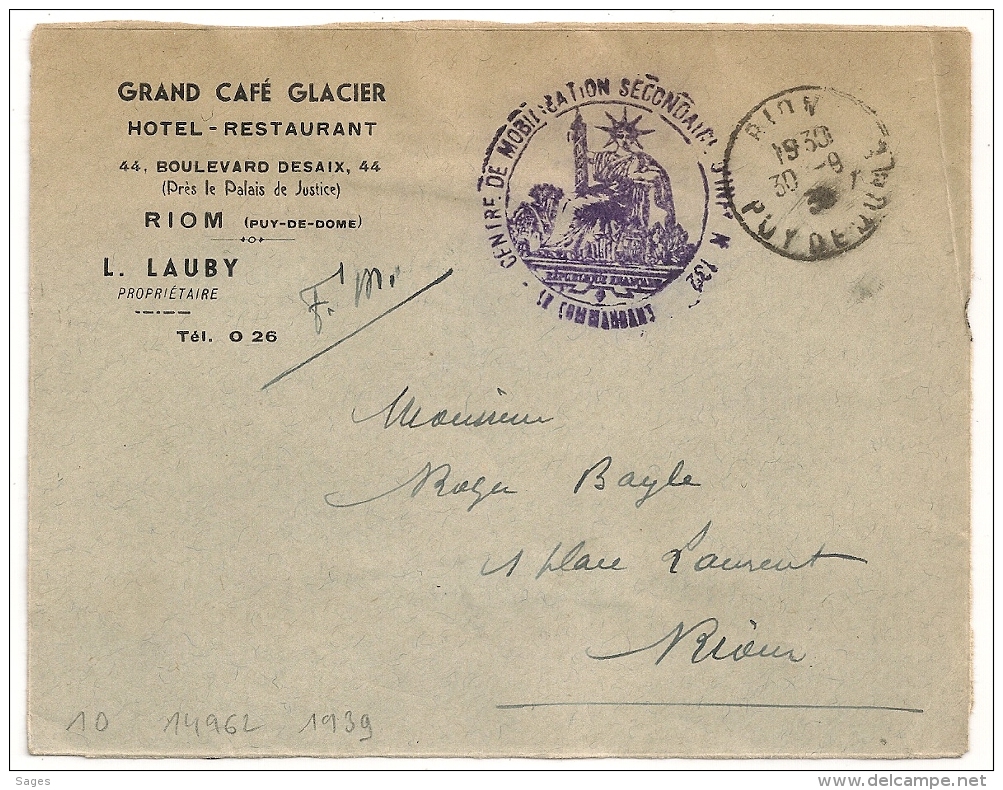 GRAND CAFÉ GLACIER
HOTEL - RESTAURANT
44, BOULEVARD DESAIX, 44
(Près le Palais de Justice)
RIOM (PUY-DE-DOME)
L. LAUBY
PROPRIÉTAIRE
Tél. 0 26
F. M.
CENTRE DE MOBILISATION SECONDAIRE
132
RÉPUBLIQUE FRANÇAISE
RIOM
19 30
30 - 9
PUY DE DOME
Monsieur
Roger Bayle
1 place Laurent
Riom
10 14962 1939
Sages
delcampe.net